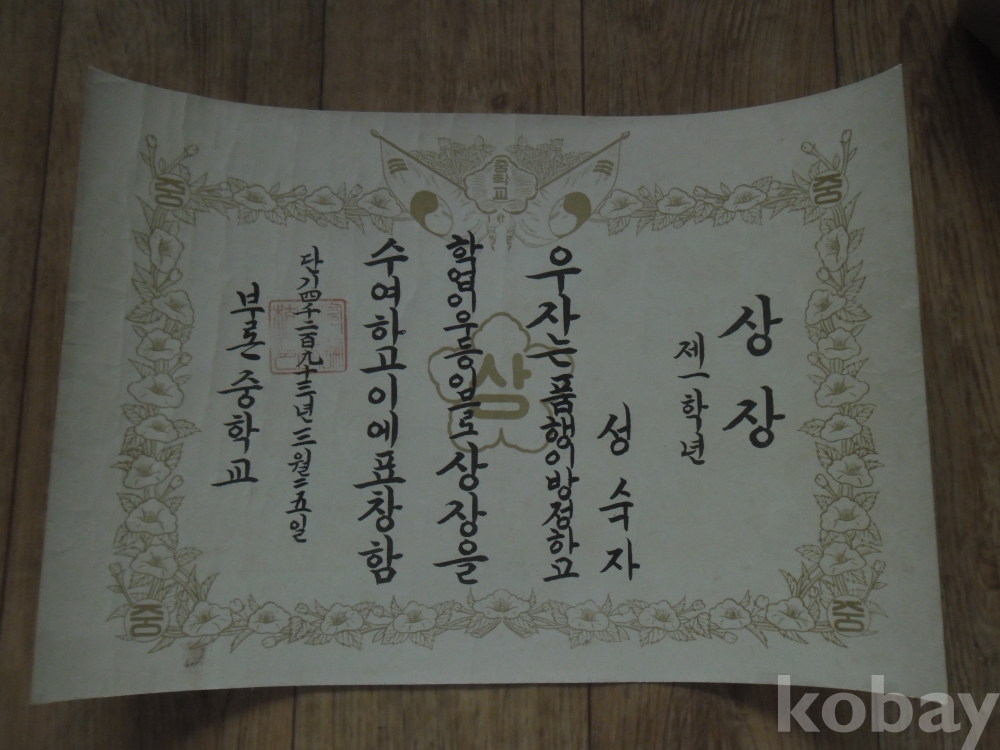 상장
제一학년
성숙자
우자는품행이방정하고
학업이우등임으로상장을
수여하고이에표창함
단기四千二百九十三年三월二五일
부론중학교
중학교
상
중
중
중
중
kobay